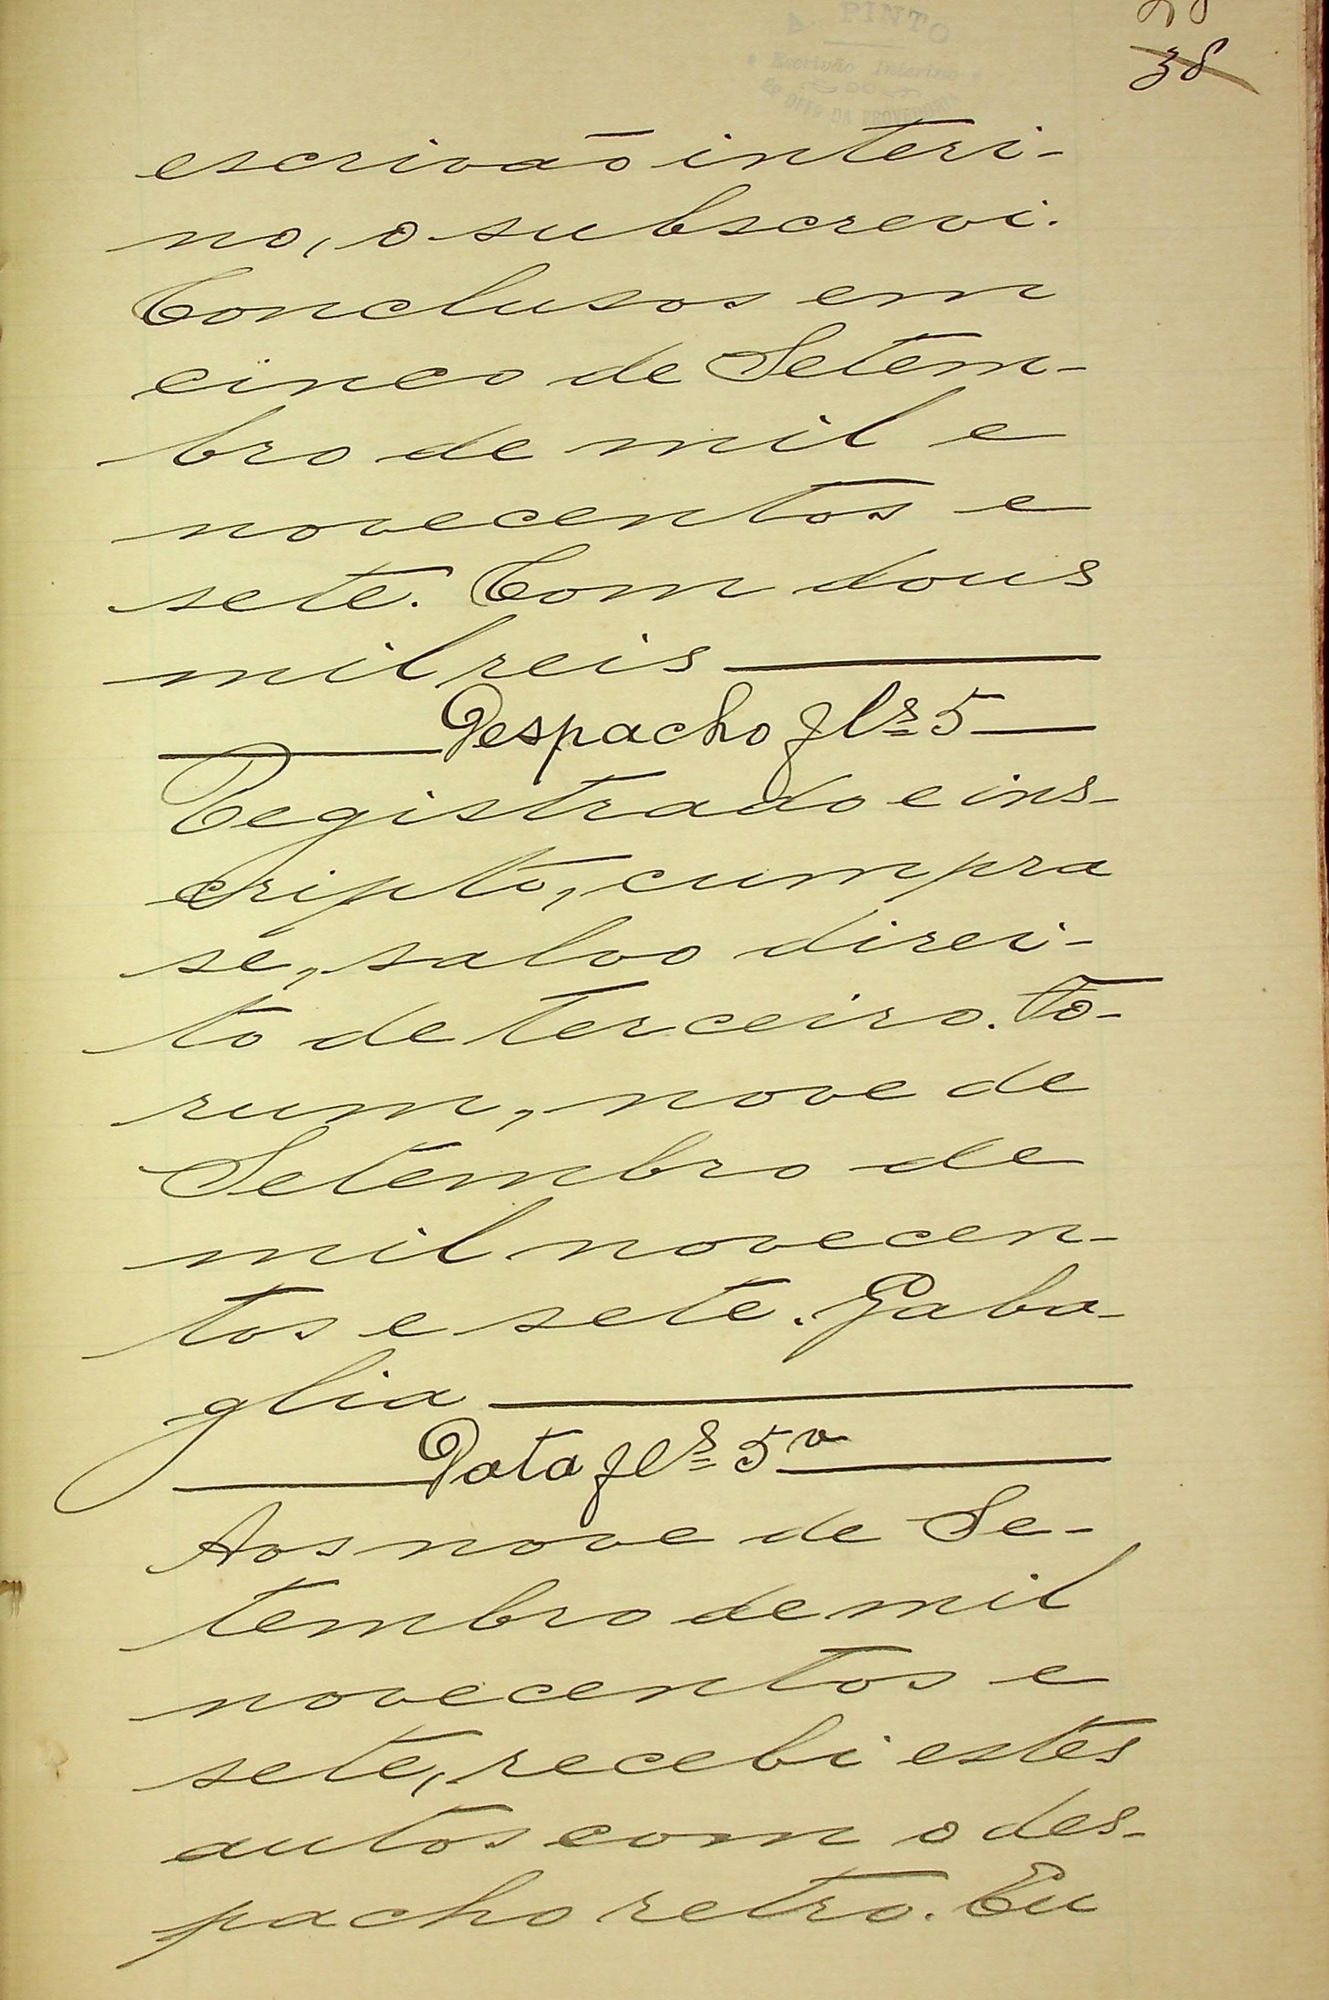 A. PINTO
Escrivão Interino
DO
2º OFFº DA PROVEDORIA
38
escrivão interi-
no, o subscrevi.
Conclusos em
cinco de Setem-
bro de mil e
novecentos e
sete. Com dous
mil reis
Despacho fls 5
Registrado e ins-
cripto, cumpra
se, salvo direi-
to de terceiro. Fo-
rum, nove de
Setembro de
mil novecen-
tos e sete. Gaba-
glia
Data fls 5v
Aos nove de Se-
tembro de mil
novecentos e
sete, recebi estes
autos com o des-
pacho retro. Eu